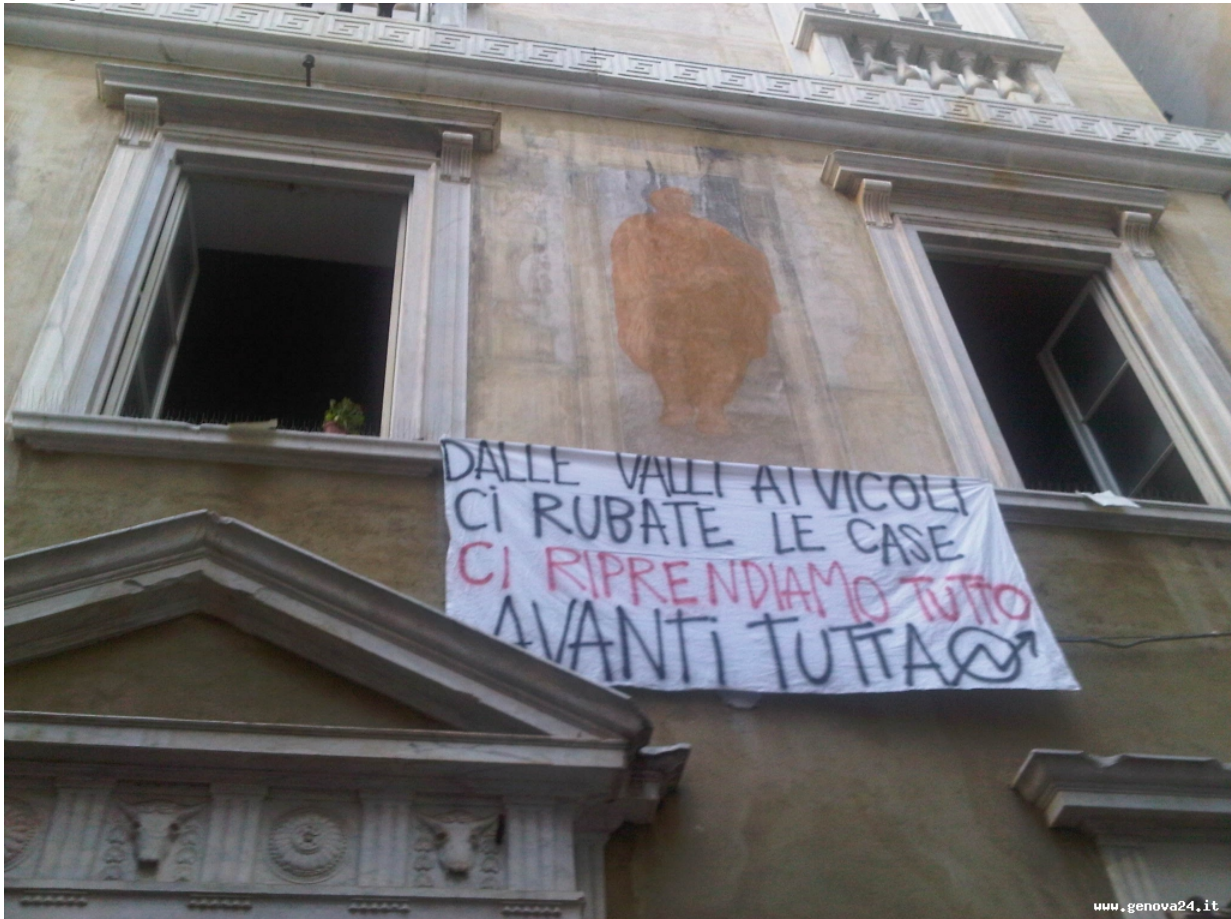 DALLE VALLI AI VICOLI
CI RUBATE LE CASE
CI RIPRENDIAMO TUTTO
AVANTI TUTTA
www.genova24.it